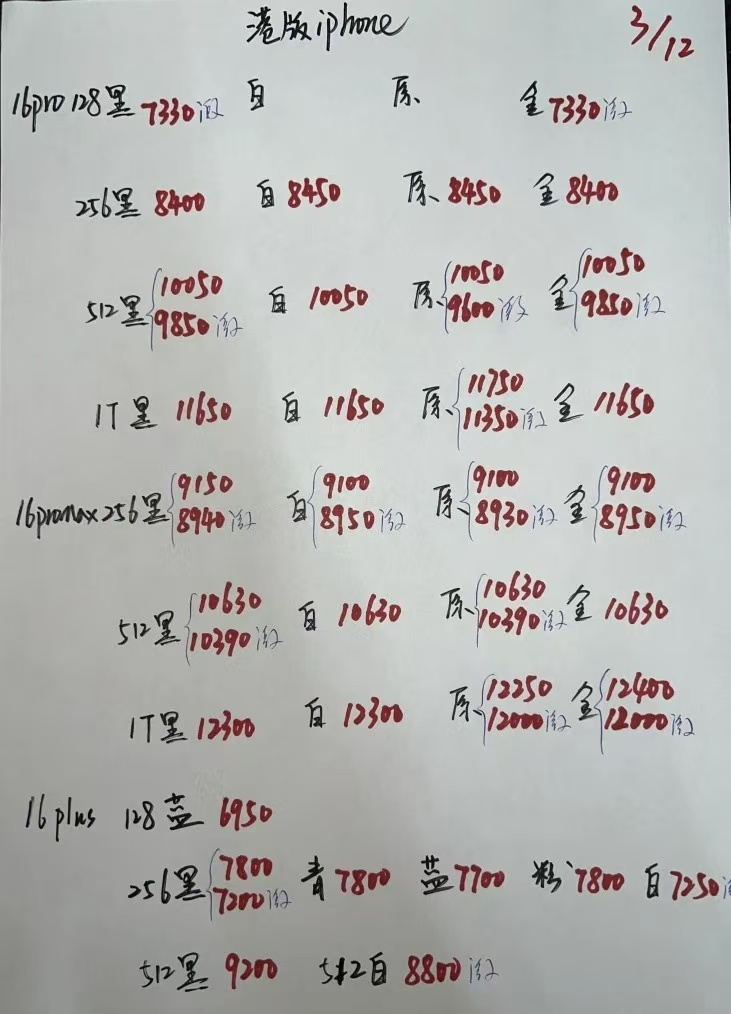 港版iphone 3/12
16pro 128黑 7330激 白 原 金 7330激
256黑 8400 白 8450 原 8450 金 8400
512黑 10050 9850激 白 10050 原 10050 9600激 金 10050 9850激
1T黑 11650 白 11650 原 11750 11350激 金 11650
16promax 256黑 9150 8940激 白 9100 8950激 原 9100 8930激 金 9100 8950激
512黑 10630 10390激 白 10630 原 10630 10390激 金 10630
1T黑 12300 白 12300 原 12250 12000激 金 12400 12000激
16plus 128蓝 6950
256黑 7800 7200激 青 7800 蓝 7700 粉 7800 白 7250激
512黑 9200 512白 8800激